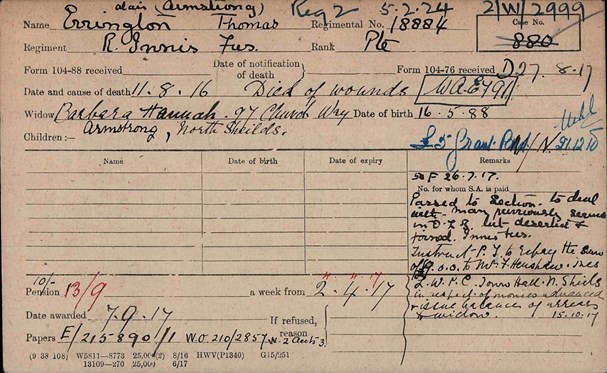 alais (Armstrong) Reg 2 5.2.24 2/W/2999
Name Errington Thomas Regimental No. 18884 Case No. 880
Regiment R. Innis Fus. Rank Pte
Form 104-88 received Date of notification of death Form 104-76 received D 27.8.17
Date and cause of death 11.8.16 Died of wounds
Widow Barbara Hannah. 97 Church Way Date of birth 16.5.88
Armstrong, North Shields.
Children:—
£5 Grant 21.12.10
Name Date of birth Date of expiry Remarks
SF 26.7.17.
No. for whom S.A. is paid
Passed to Section to deal
with. Man previously served
in D.L.I. but deserted &
joined Innis Fus.
Instruct P.I. to repay the sum
of to Mr. F. Henshaw. Tres
L.W.P.C. Town Hall. N. Shields
in respect of money advanced
& issue balance of arrears
to widow. 15.10.17
10/-
Pension 13/9 a week from 2.4.17
Date awarded 7.9.17 If refused, reason
Papers E/215890/1 W.O. 210/2857
(9 38 108) W5811—8773 25,000(2) 8/16 HWV(P1340) G15/251
13109—270 25,000 6/17